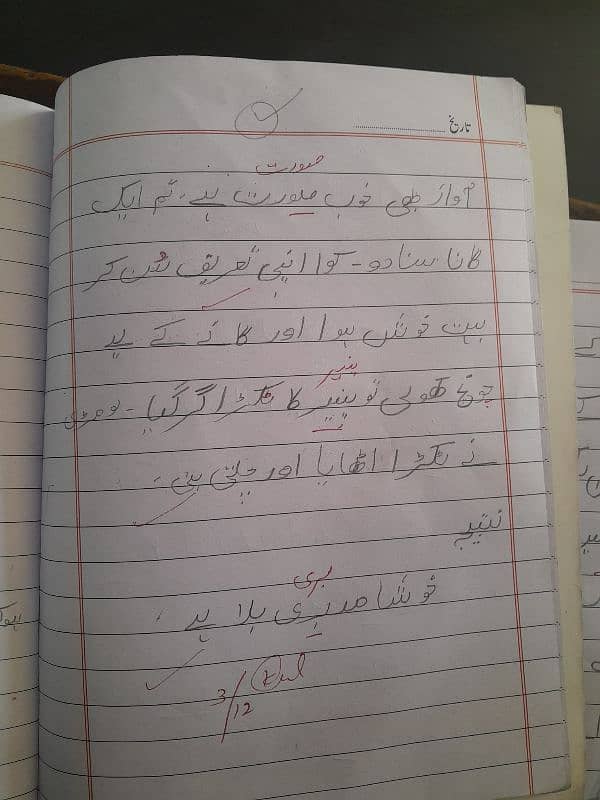 تاریخ
صورت
آواز بھی خوب صورت ہے۔ تم ایک
گانا سنا دو۔ کوا اپنی تعریف سن کر
بہت خوش ہوا اور گانے کے لیے
پنیر
چونچ کھولی تو پنیر کا ٹکڑا گر گیا۔ لومڑی
نے ٹکڑا اٹھایا اور چلتی بنی۔
نتیجہ
بری
خوشامد بری بلا ہے۔
3/12